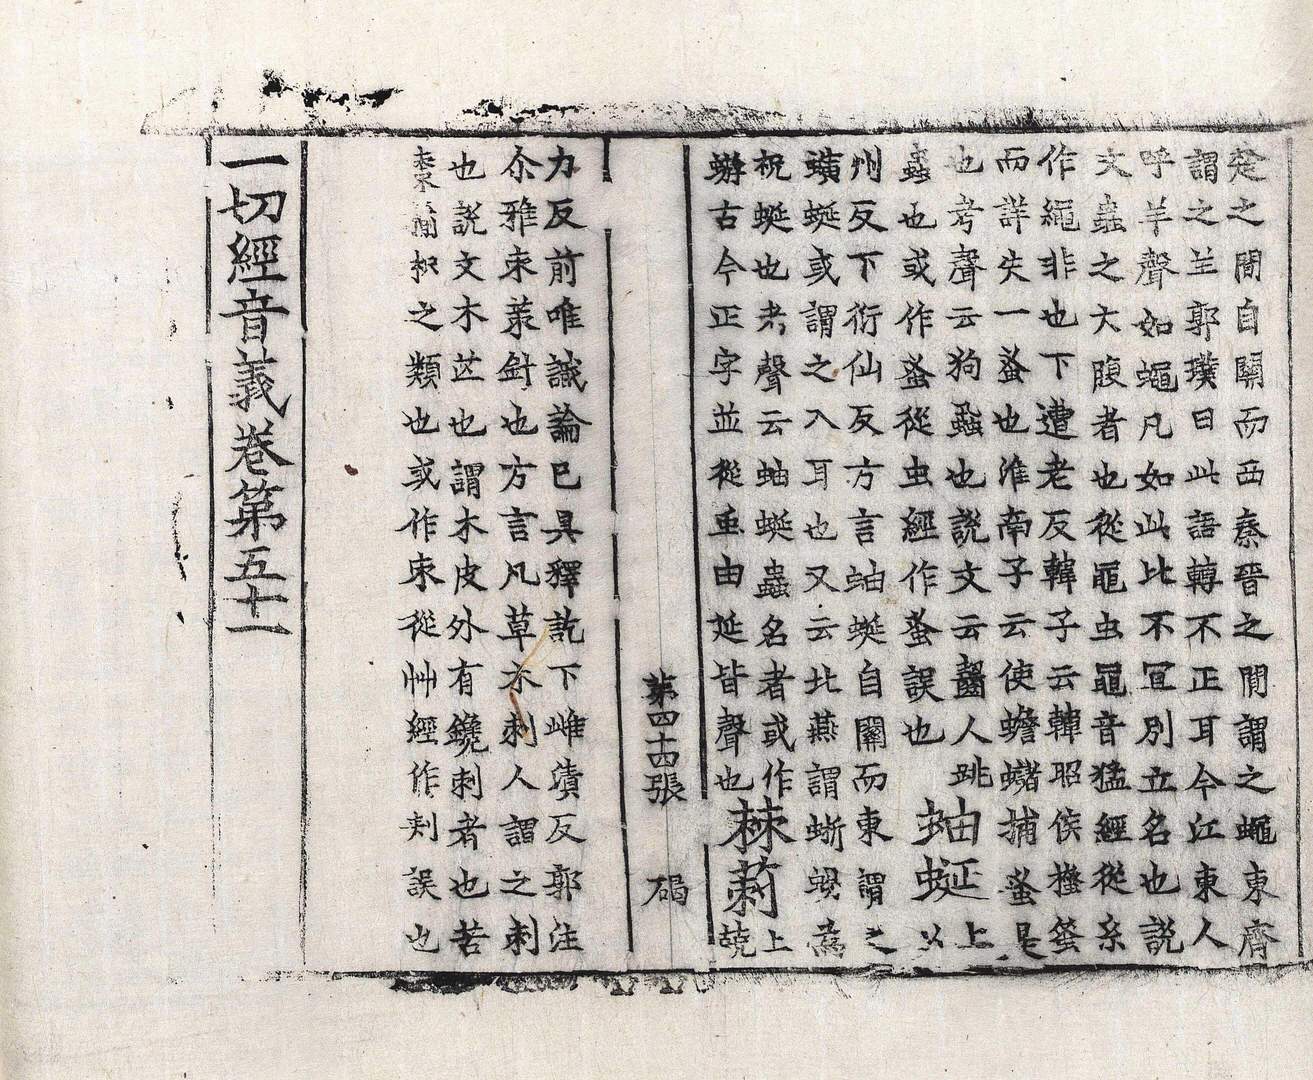 楚之間自關而西秦晉之閒謂之蠅東齊
謂之羊郭璞曰此語轉不正耳今江東人
呼羊聲如蠅凡如此比不宜別立名也說
文蟲之大腹者也從黽虫黽音猛經從糸
作繩非也下遭老反韓子云韓昭侯搔蚤
而詳失一蚤也淮南子云使蟾蠩捕蚤是
也考聲云狗蝨也說文云齧人跳
蟲也或作蚤從虫經作蚤誤也
蚰蜒
上以
州反下衍仙反方言蚰蜒自關而東謂之
螾蜒或謂之入耳也又云北燕謂蚭為
祝蜒也考聲云蚰蜒蟲名者或作
蝣古今正字並從虫由延皆聲也
棘莿
上兢
第四十四張 碣
力反前唯識論已具釋訖下雌漬反郭注
尒雅朿莿針也方言凡草木刺人謂之刺
也說文木芒也謂木皮外有鑱刺者也若
棗枳之類也或作朿從艸經作刾誤也
一切經音義卷第五十一